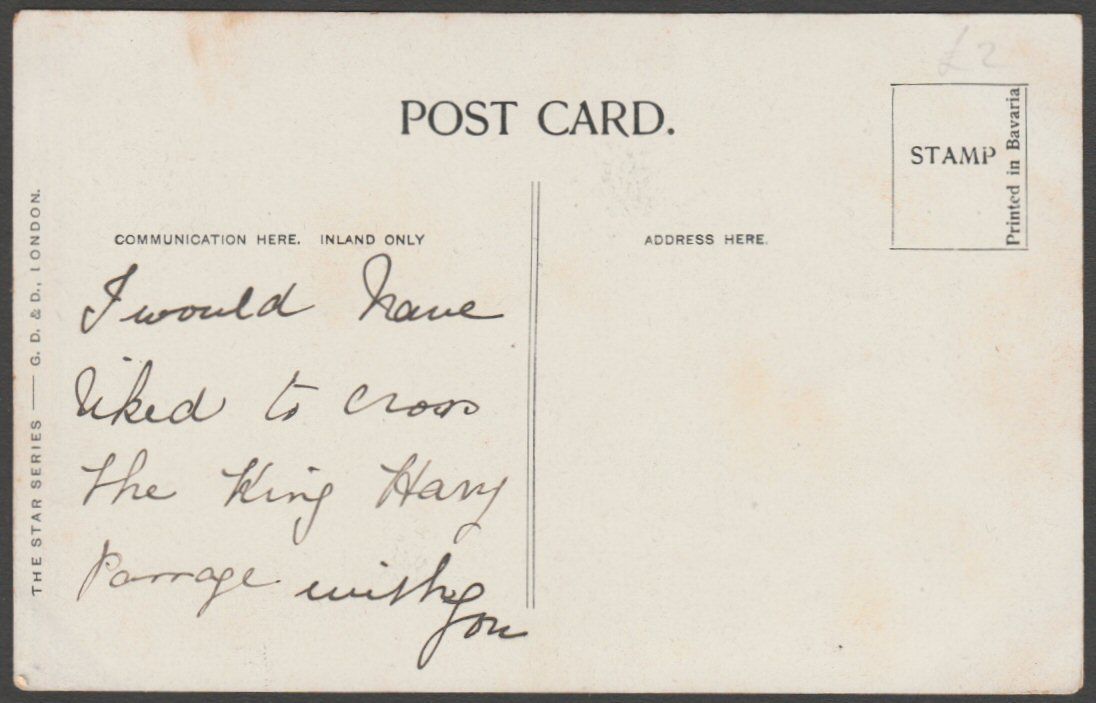 £2
POST CARD.
STAMP
Printed in Bavaria
COMMUNICATION HERE. INLAND ONLY
ADDRESS HERE.
THE STAR SERIES — G. D. & D., LONDON.
I would have
liked to cross
the King Harry
Passage with you